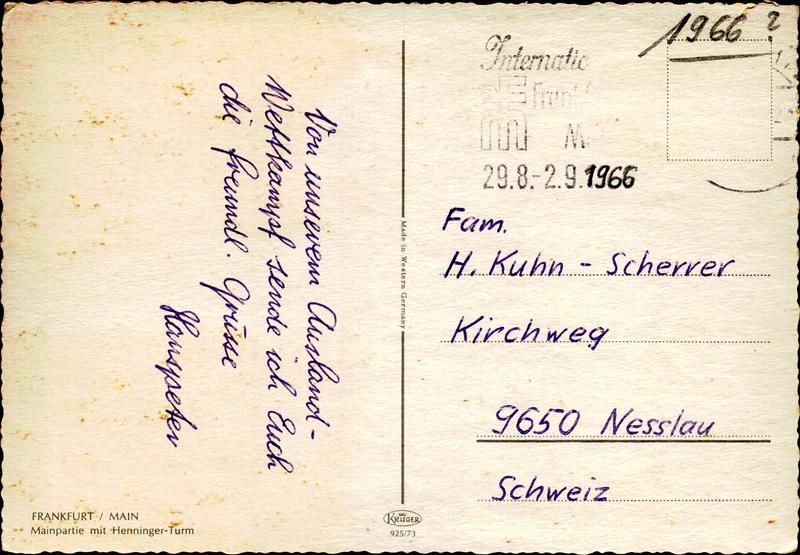 Von unserem Ausland-
Wettkampf sende ich Euch
die freundl. Grüsse
Hanspeter
FRANKFURT / MAIN
Mainpartie mit Henninger-Turm
Made in Western Germany
KRÜGER
925/73
1966 ?
29.8.-2.9.1966
Fam.
H. Kuhn - Scherrer
Kirchweg
9650 Nesslau
Schweiz